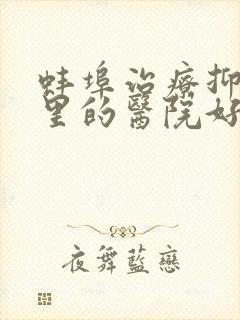 蚌埠治療抑
里的醫院好
夜舞藍戀